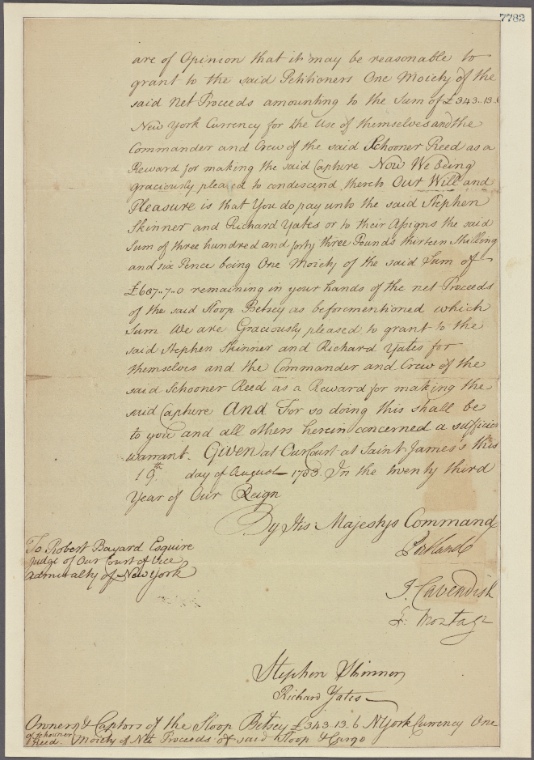 7782
are of Opinion that it may be reasonable to
grant to the said Petitioners One Moiety of the
said Net Proceeds amounting to the Sum of £343..13.
New York Currency for the Use of themselves and the
Commander and Crew of the said Schooner Reed as a
Reward for making the said Capture Now We being
graciously pleased to condescend thereto Our Will and
Pleasure is that You do pay unto the said Stephen
Skinner and Richard Yates or to their Assigns the said
Sum of three hundred and forty three Pounds thirteen Shilling
and six Pence being One Moiety of the said Sum of
£687..7..0 remaining in your hands of the net Proceeds
of the said Sloop Betsey as beforementioned which
Sum We are Graciously pleased to grant to the
said Stephen Skinner and Richard Yates for
themselves and the Commander and Crew of the
said Schooner Reed as a Reward for making the
said Capture And For so doing this shall be
to you and all others herein concerned a sufficient
Warrant. Given at Our Court at Saint James's this
19th day of August 1783. In the twenty third
Year of Our Reign
By His Majestys Command
Portland
To Robert Bayard Esquire
Judge of Our Court of Vice
Admiralty of New York
J. Cavendish
F. Montagu
Stephen Skinner
Richard Yates
Owners & Captors of the Sloop Betsey £343.13.6 NYork Currency One
of Schooner
Reed. Moiety of Net Proceeds of said Sloop & Cargo